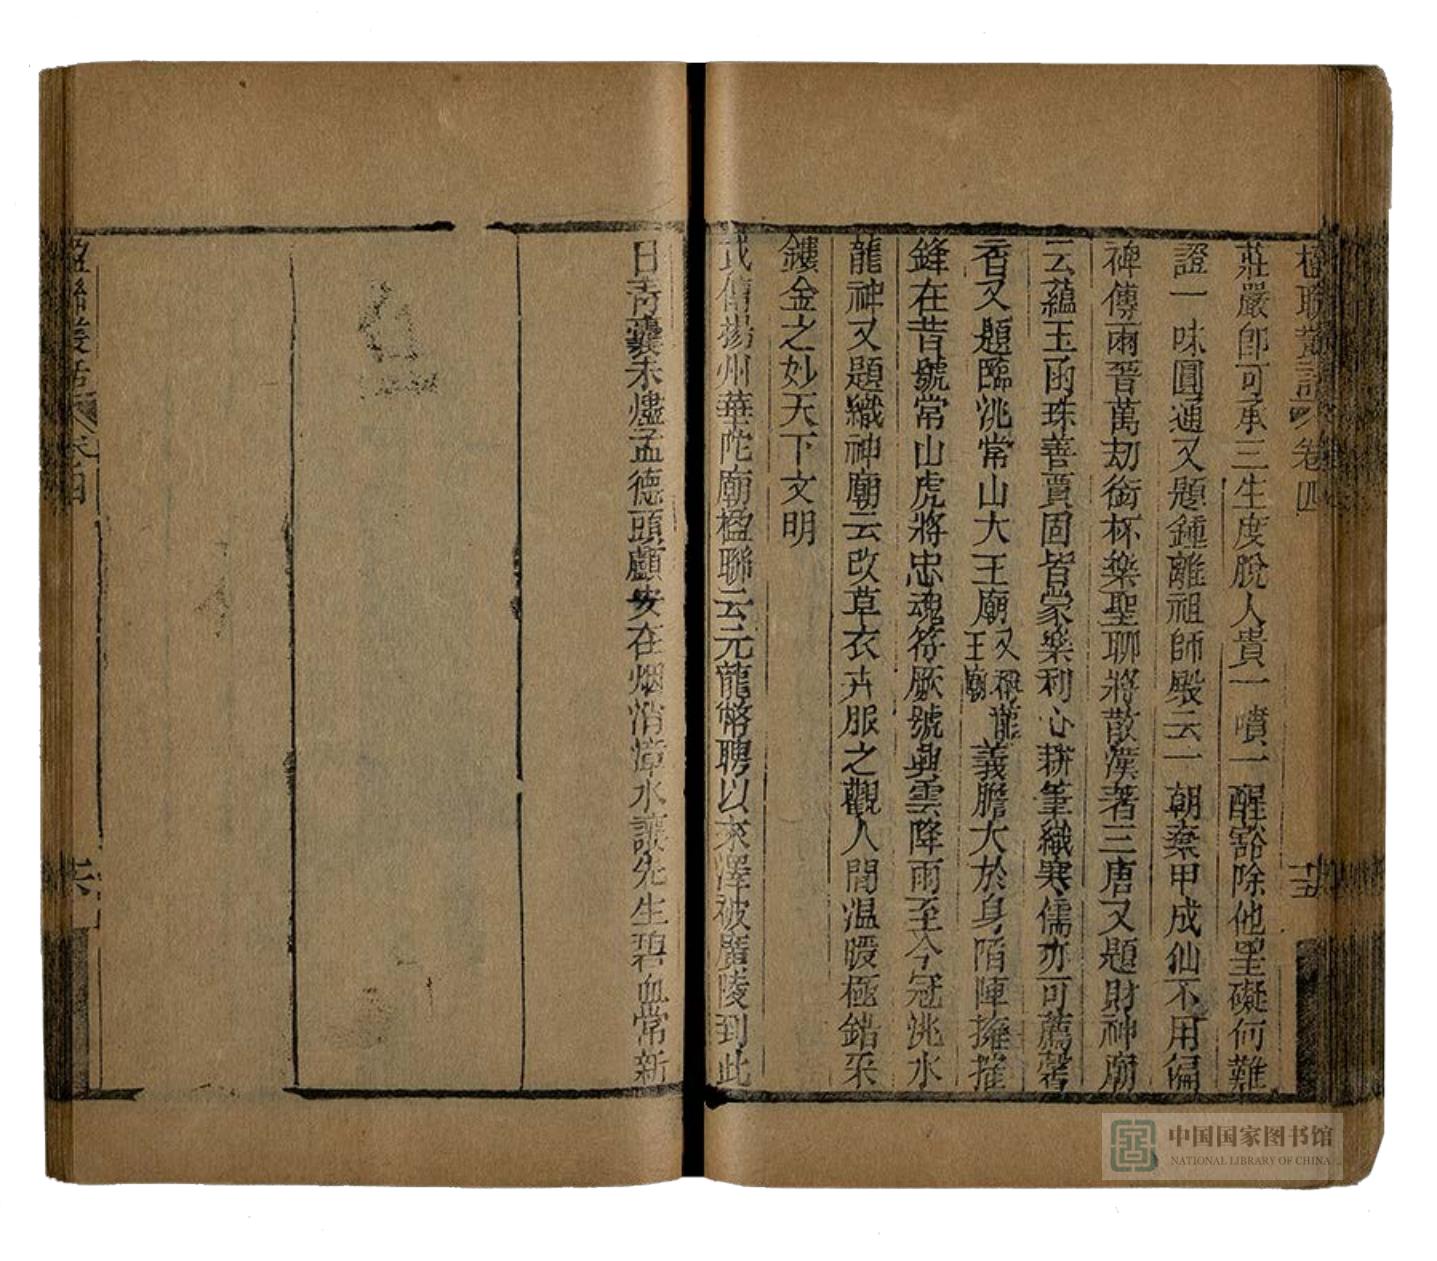 楹聯叢話 卷四 十五
莊嚴卽可承三生度脫人貴一噴一醒豁除他罣礙何難
證一味圓通又題鍾離祖師殿云一朝棄甲成仙不用偏
裨傳兩晉萬劫銜杯樂聖聊將散漢著三唐又題財神廟
云蘊玉函珠善賈固皆蒙樂利心耕筆織寒儒亦可薦馨
香又題臨洮常山大王廟又稱龍王廟義膽大於身隋陣擁摧
鋒在昔號常山虎將忠魂符厥號興雲降雨至今冠洮水
龍神又題織神廟云改草衣卉服之觀人間温暖極錯采
鏤金之妙天下文明
或傳揚州華陀廟楹聯云元龍幣聘以來澤被廣陵到此
日靑囊未燼孟德頭顱安在烟悄漳水讓先生碧血常新
楹聯叢話 卷四